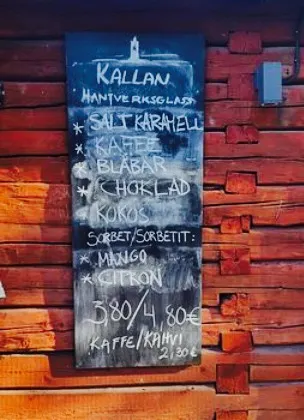 KALLAN
HANTVERKSGLASS
* SALT KARAMELL
* KAFFE
* BLÅBÄR
* CHOKLAD
* KOKOS
SORBET/SORBETIT:
* MANGO
* CITRON
3,80/4,80€
KAFFE/KAHVI
2,20€